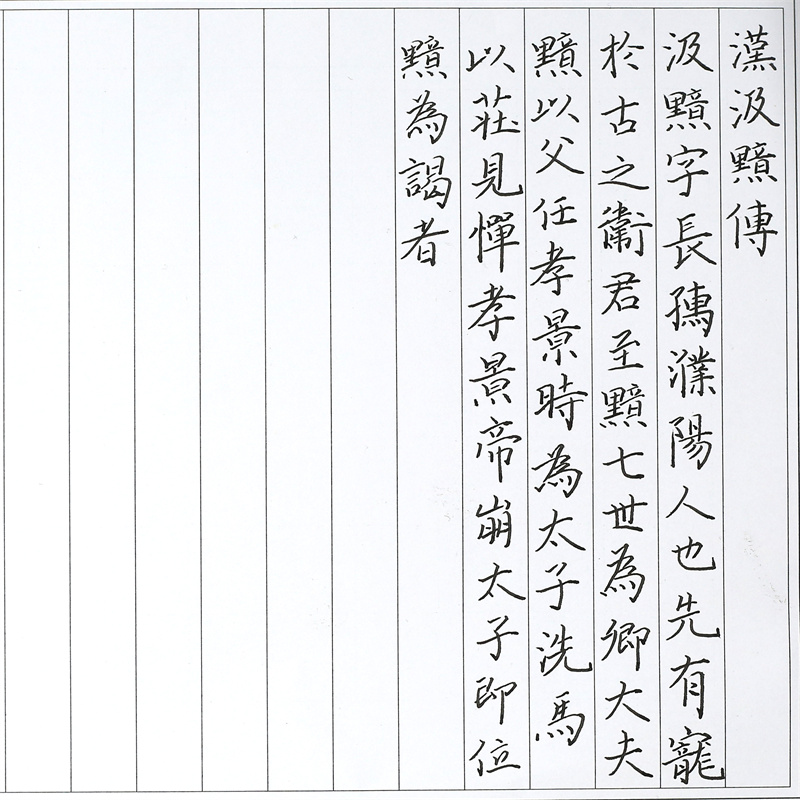 漢汲黯傳
汲黯字長孺濮陽人也先有寵
於古之衛君至黯七世為卿大夫
黯以父任孝景時為太子洗馬
以莊見憚孝景帝崩太子即位
黯為謁者